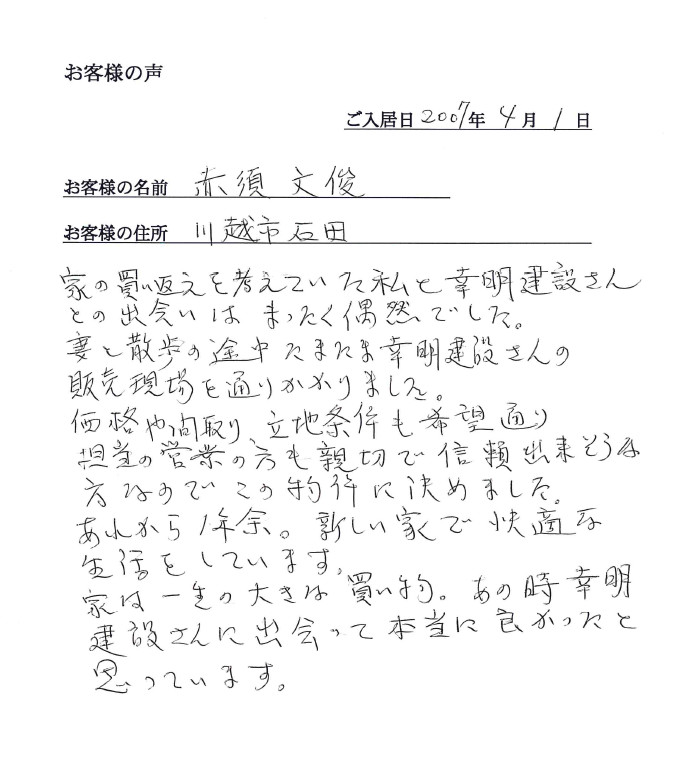 お客様の声
ご入居日 2007年 4月 1日
お客様の名前 赤須 文俊
お客様の住所 川越市石田
家の買い返えを考えていた私と幸明建設さん
との出会いは まったく偶然でした。
妻と散歩の途中たまたま幸明建設さんの
販売現場を通りかかりました。
価格や間取り、立地条件も希望通り
担当の営業の方も親切で信頼出来そうな
方なのでこの物件に決めました。
あれから1年余。新しい家で快適な
生活をしています。
家は一生の大きな買い物。あの時幸明
建設さんに出会って本当に良かったと
思っています。